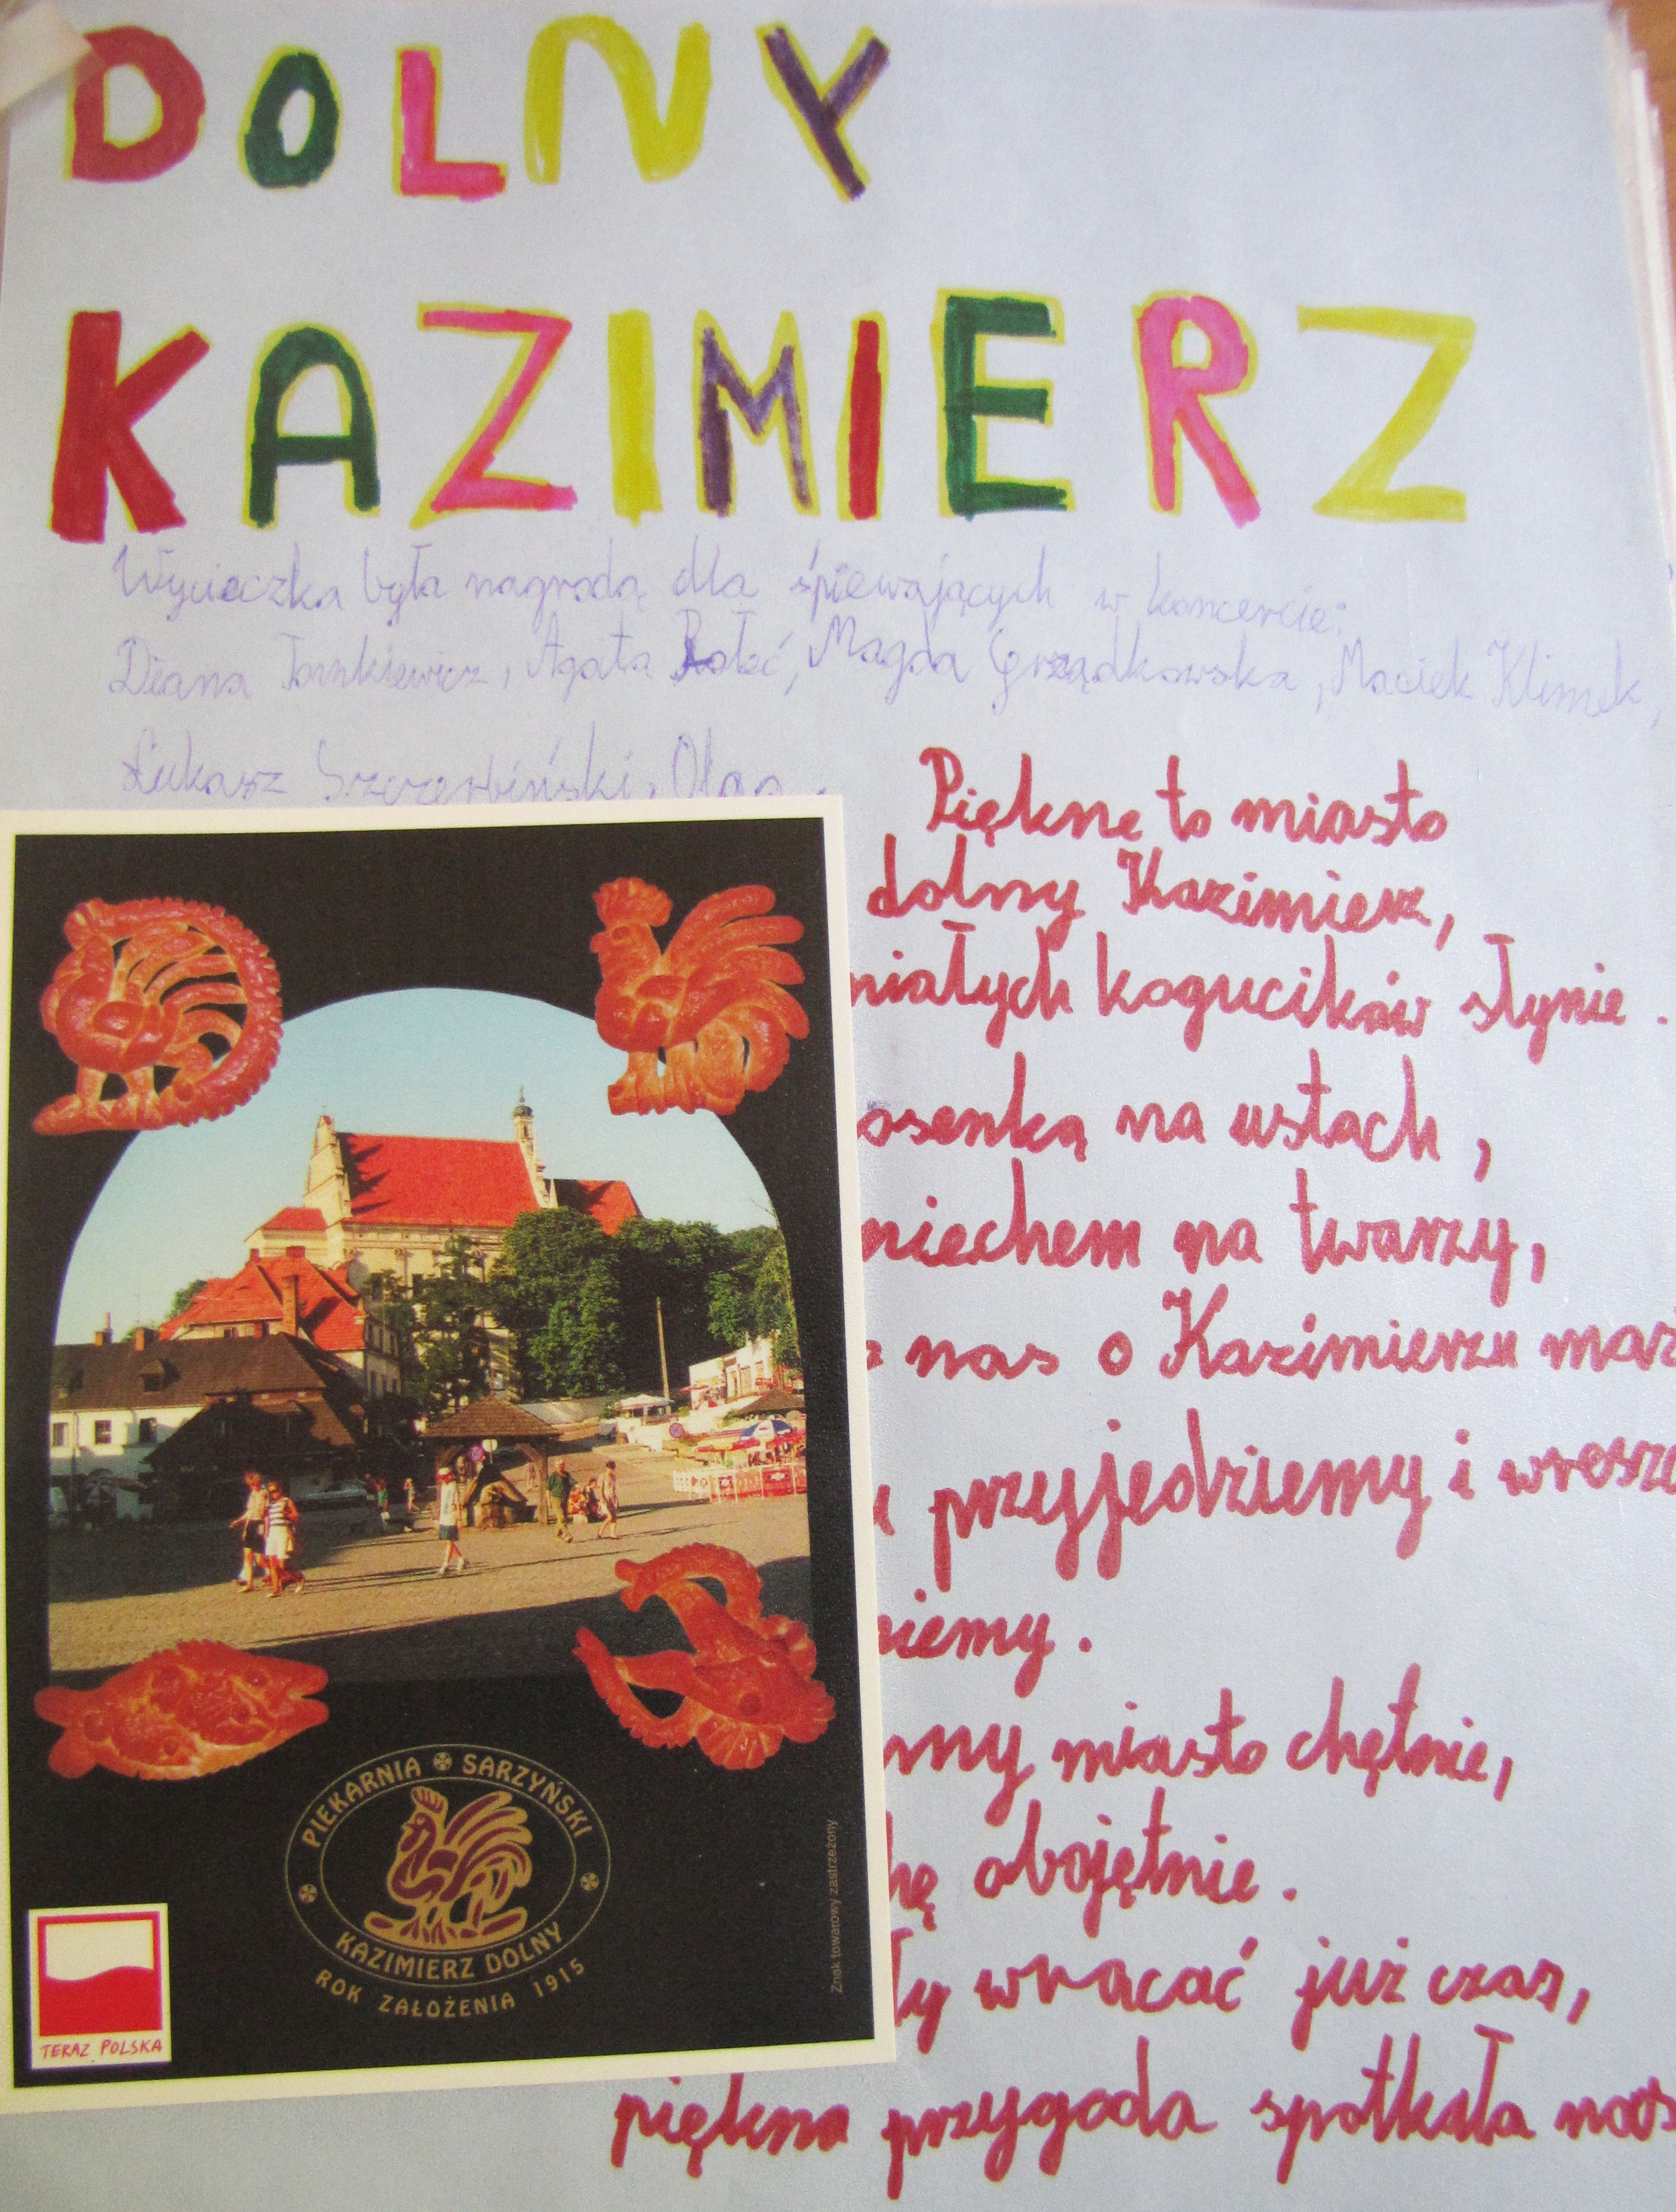 DOLNY
KAZIMIERZ
Wycieczka była nagrodą dla śpiewających w koncercie:
Diana Agata Magda Grządkowska, Maciek Klimek,
Łukasz Szczerbiński, Olga
Piękne to miasto
dolny Kazimierz,
kogucików słynie.
osenką na ustach,
miechem na twarzy,
nas o Kazimierzu marz
przyjjedziemy i wresz
niemy.
my miasto chętnie,
hę obojętnie.
ły wracać już czas,
piękna przygoda spotkała nas
PIEKARNIA SARZYŃSKI
KAZIMIERZ DOLNY
ROK ZAŁOŻENIA 1915
Znak towarowy zastrzeżony
TERAZ POLSKA